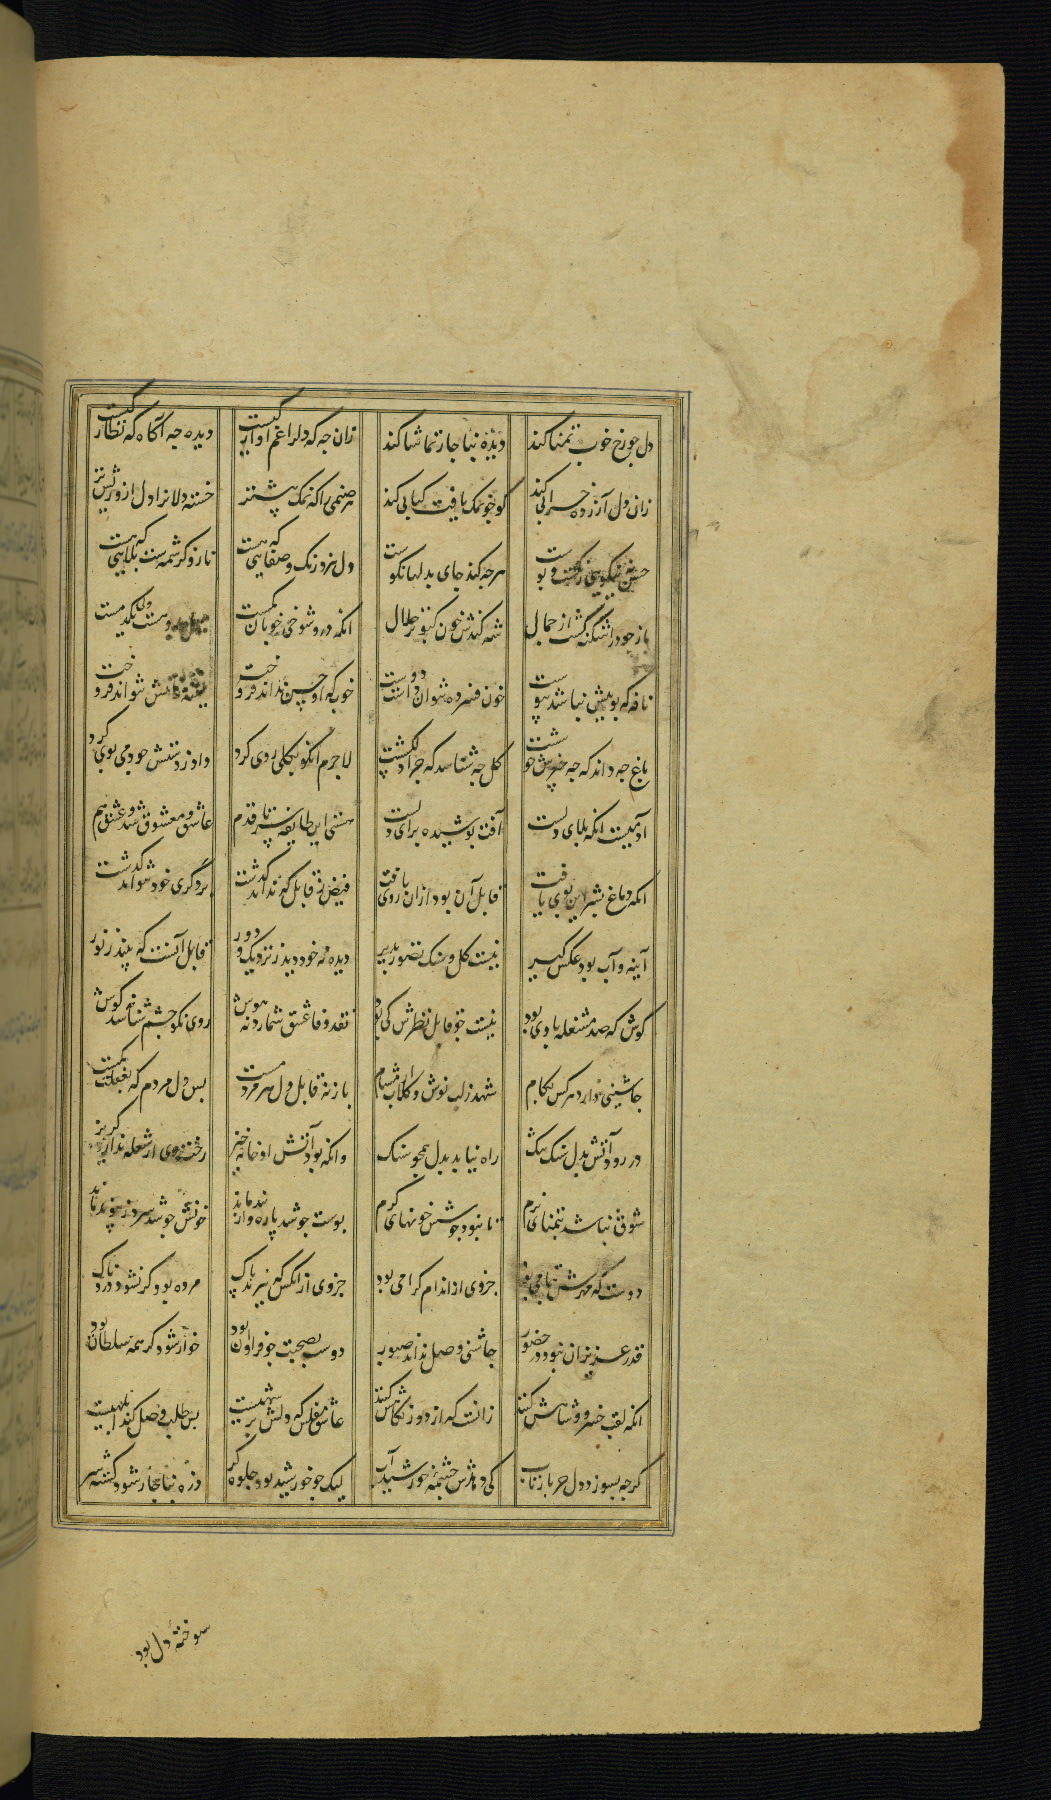 دل چو رخ خوب تمنا کند دیده نیاجار تماشا کند زان چه که دلرا غم آوارگیست دیده چه آگاه که نظارگیست
زان دل آزرده خرابی کند کو چو نمک یافت کبابی کند هر صنمی را که نمک پیشتر خسته دلانرا دل ازو ریش تر
حسن نه نیکویی رنگست و بوست هر چه کند جای بدلها نکوست دل نبرد رنگ و صفاییی که هست ناز و کرشمه‌ست بلاییی که هست
باز خود را شکنه گشت از جمال شه کندش خون کبوتر حلال آنکه درو شوخی خوبان کمست هست ولی یکدمست
نافه که بوییش نباشد بپوست خون فسرده شوان داشت دوست خوب که او حسن نداند فروخت فتنه شواند فروخت
باغ چه داند که چه خیزش خوشست گل چه شناسد که چرا دلکشست لاجرم آنکو بگلی روی کرد داد ز دستش چو دمی بوی کرد
آدمیست آنکه بلای دلست آفت پوشیده برای دلست هستی این طایفه سر تا قدم عاشق و معشوق شد و عشق هم
آنکه دماغ بشر این بوی یافت قابل آن بود ازان روی یافت فیض ز قابل که نداند گذشت بر دگری خود شواند گذشت
آینه و آب بود عکس گیر نیست گل و سنک تصور پذیر دیده که خود دید ز نزدیک و دور قابل آنست که بیند ز نور
گوش که صد مشغله با وی بود نیست چو قابل نظرش کی بود نقد وفا عشق شمارد نه هوش روی نکو چشم شناسد نه گوش
چاشنیی دارد هر کس بکام شهد ز لب نوش و گلاب از مشام باز نه قابل دل هر مردمست بس دل مردم که بغفلت گمست
در رود آتش بدل سنک سنک راه نیابد بدل همچو سنک وانکه بود آتش او خانه خیز رخت زوی از شعله ندارد گریز
شوق نباشد بتمنای نرم تا نبود جوشش خونهای گرم پوست چو شد پاره و از بند ماند خونش چو شد سرد ز پیوند ماند
دوست که مهرش بتمامی بود جزوی از اندام گرامی بود جزوی از انکس که ببرند پاک مرده بود گر نشود دردناک
قدر عزیزان نبود در حضور چاشنی وصل نداند صبور دوست بصحبت چو فراوان بود خوار شود گر همه سلطان بود
آنکه لقب خسرو و شاهش کنند زانست که از دور نگاهش کنند عاشق مفلس که دلش بر شهیست بس طلب وصل کند ابلهیست
گرچه بسوزد دل حربا ز تاب کی دهدش چشمه خورشید آب لیک چو خورشید بود جلوه گر ذره نیاجار شود گشته سر
سوخته دل بود